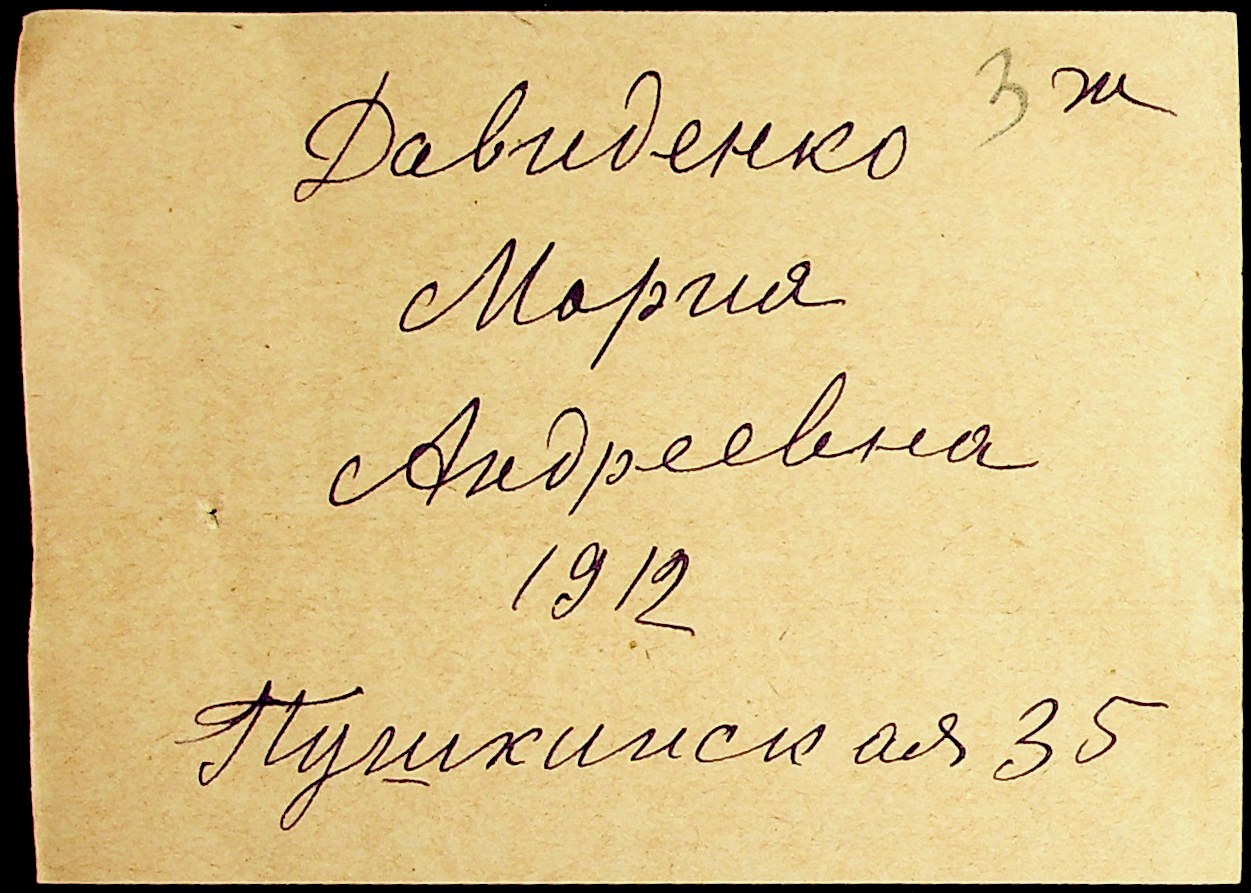 3 ж
Давиденко
Мария
Андреевна
1912
Пушкинская 35